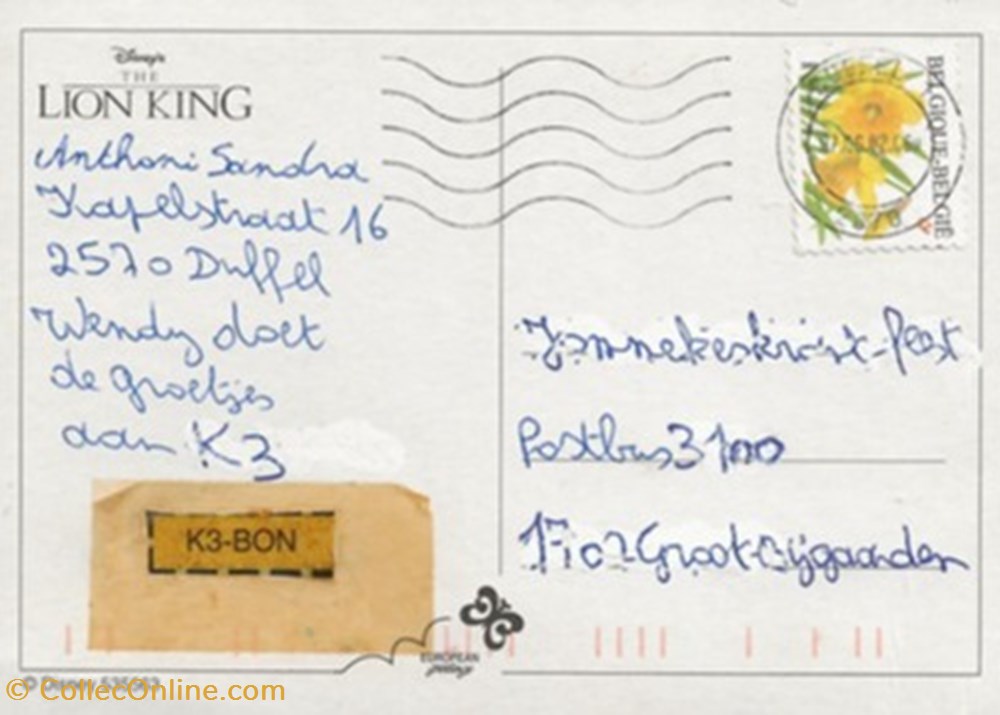 Disney's
THE
LION KING
Anthoni Sandra
Kapelstraat 16
2570 Duffel
Wendy doet
de groetjes
aan K3
K3-BON
BELGIQUE-BELGIË
Postbus 3100
1702 Groot-Bijgaarden
EUROPEAN
© Disney
© CollecOnline.com